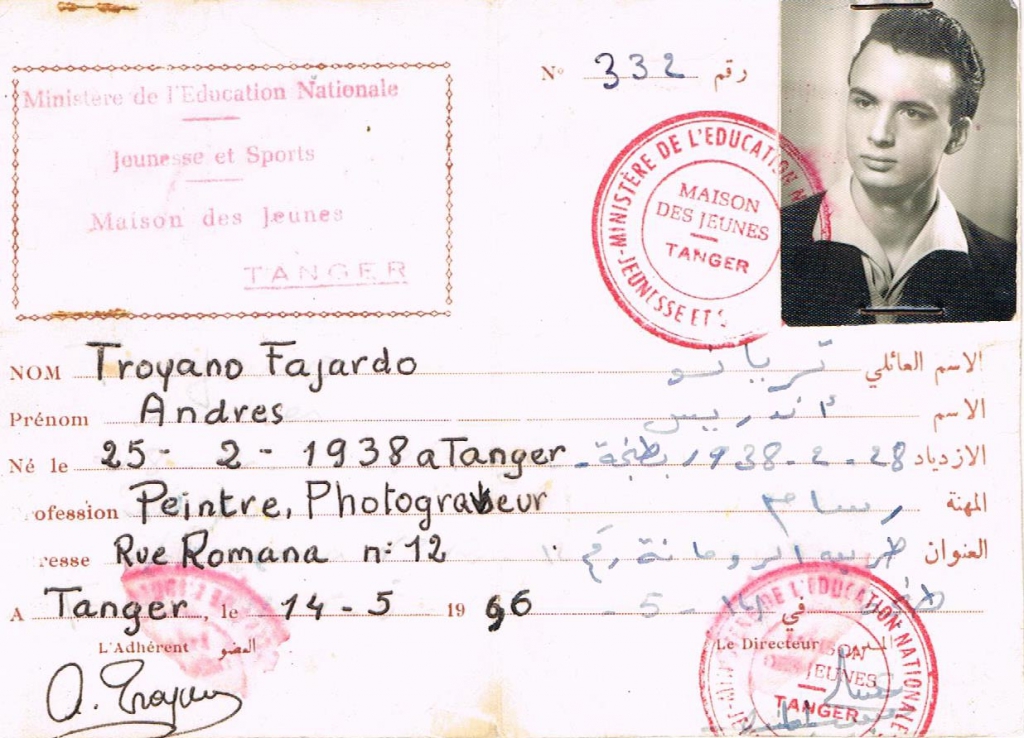 Ministère de l'Education Nationale
Jeunesse et Sports
Maison des Jeunes
TANGER
N° 332 رقم
MINISTÈRE DE L'EDUCATION
JEUNESSE ET
MAISON
DES JEUNES
TANGER
NOM Troyano Fajardo الاسم العائلي تريانو
Prénom Andres الاسم أندريس
Né le 25 - 2 - 1938 a Tanger الازدياد 28-2-1938 بطنجة
ofession Peintre, Photograveur المهنة رسام
resse Rue Romana n: 12 العنوان
A Tanger, le 14-5 1966 في
L'Adhérent العضو Le Directeur
A. Troyano
DE L'EDUCATION NATIONALE
JEUNES
TANGER